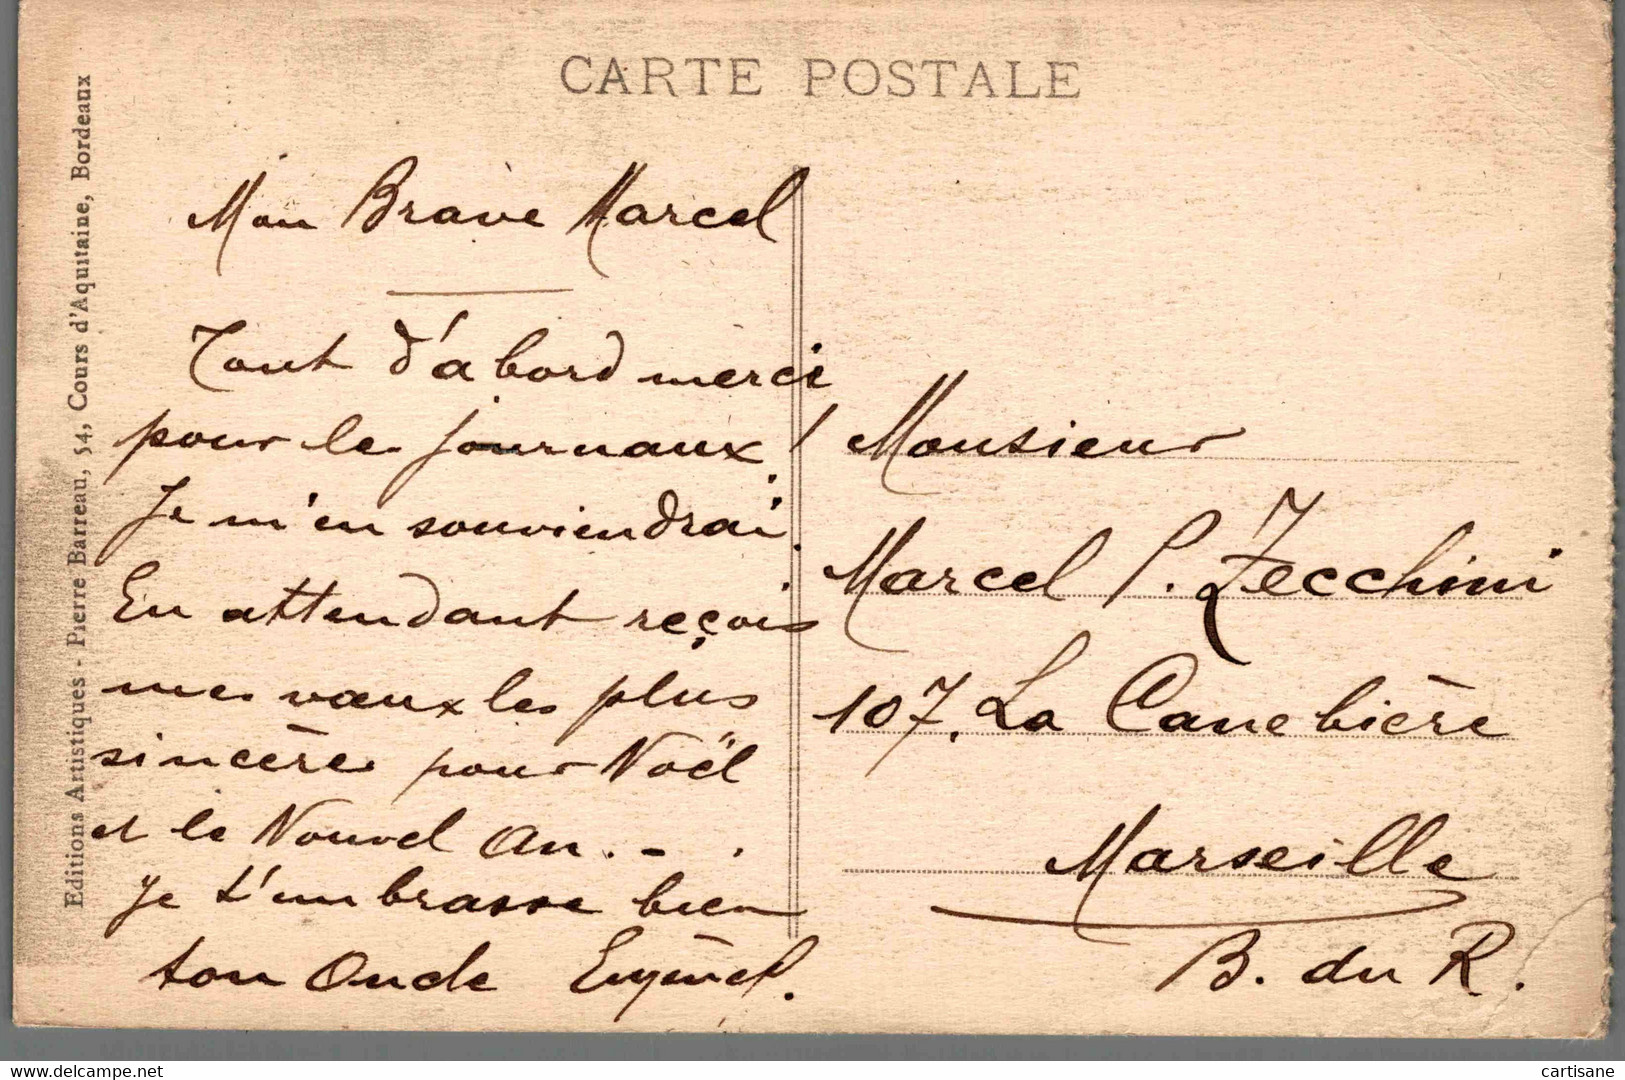 CARTE POSTALE
Editions Artistiques - Pierre Barreau, 54, Cours d'Aquitaine, Bordeaux
Mon Brave Marcel
Tout d'abord merci
pour les journaux !
Je m'en souviendrai.
En attendant reçois
mes vœux les plus
sincères pour Noël
et le Nouvel An. - .
Je t'embrasse bien
ton Oncle
Monsieur
Marcel P. Zecchini
107. La Canebière
Marseille
B. du R.
www.delcampe.net
cartisane